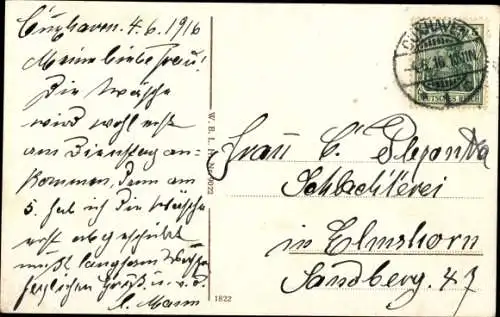 Cuxhaven. 4.6.1916
Meine liebe Frau!
Die Wäsche
wird wohl erst
am Dienstag an-
kommen, denn am
5. hab ich die Wäsche
erst abgeschickt
herzlichen Gruß u. s. d.
C. Mann
W. B. L.
1822
CUXHAVEN
DEUTSCHES REICH
Frau C.
Schlachterei
in Elmshorn
Sandberg. 47